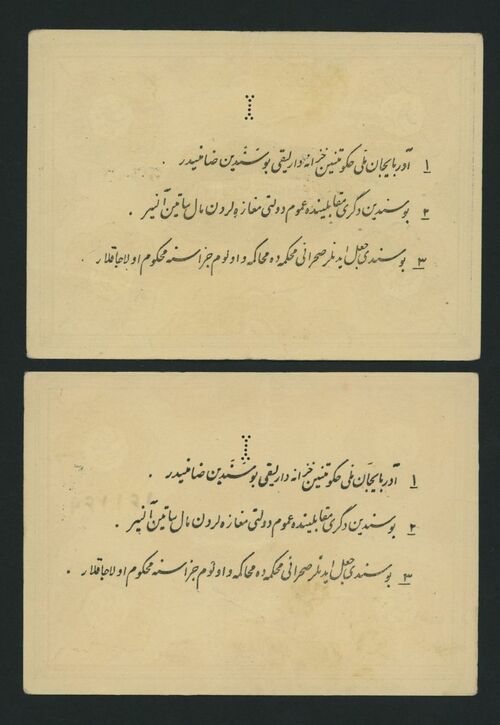 ۱ آذربایجان ملی حکومتنین خزانه دارلیقی بو سَنَدین ضامنیدر .
۲ بو سندین دگری مقابلینده عموم دولتی مغازه لردن مال ساتین آلنیر .
۳ بو سندی جعل ایدنلر صحرائی محکمه ده محاکمه و اولوم جزاسنه محکوم اولاجاقلار .
۱ آذربایجان ملی حکومتنین خزانه دارلیقی بو سَنَدین ضامنیدر .
۲ بو سندین دگری مقابلینده عموم دولتی مغازه لردن مال ساتین آلنیر .
۳ بو سندی جعل ایدنلر صحرائی محکمه ده محاکمه و اولوم جزاسنه محکوم اولاجاقلار .